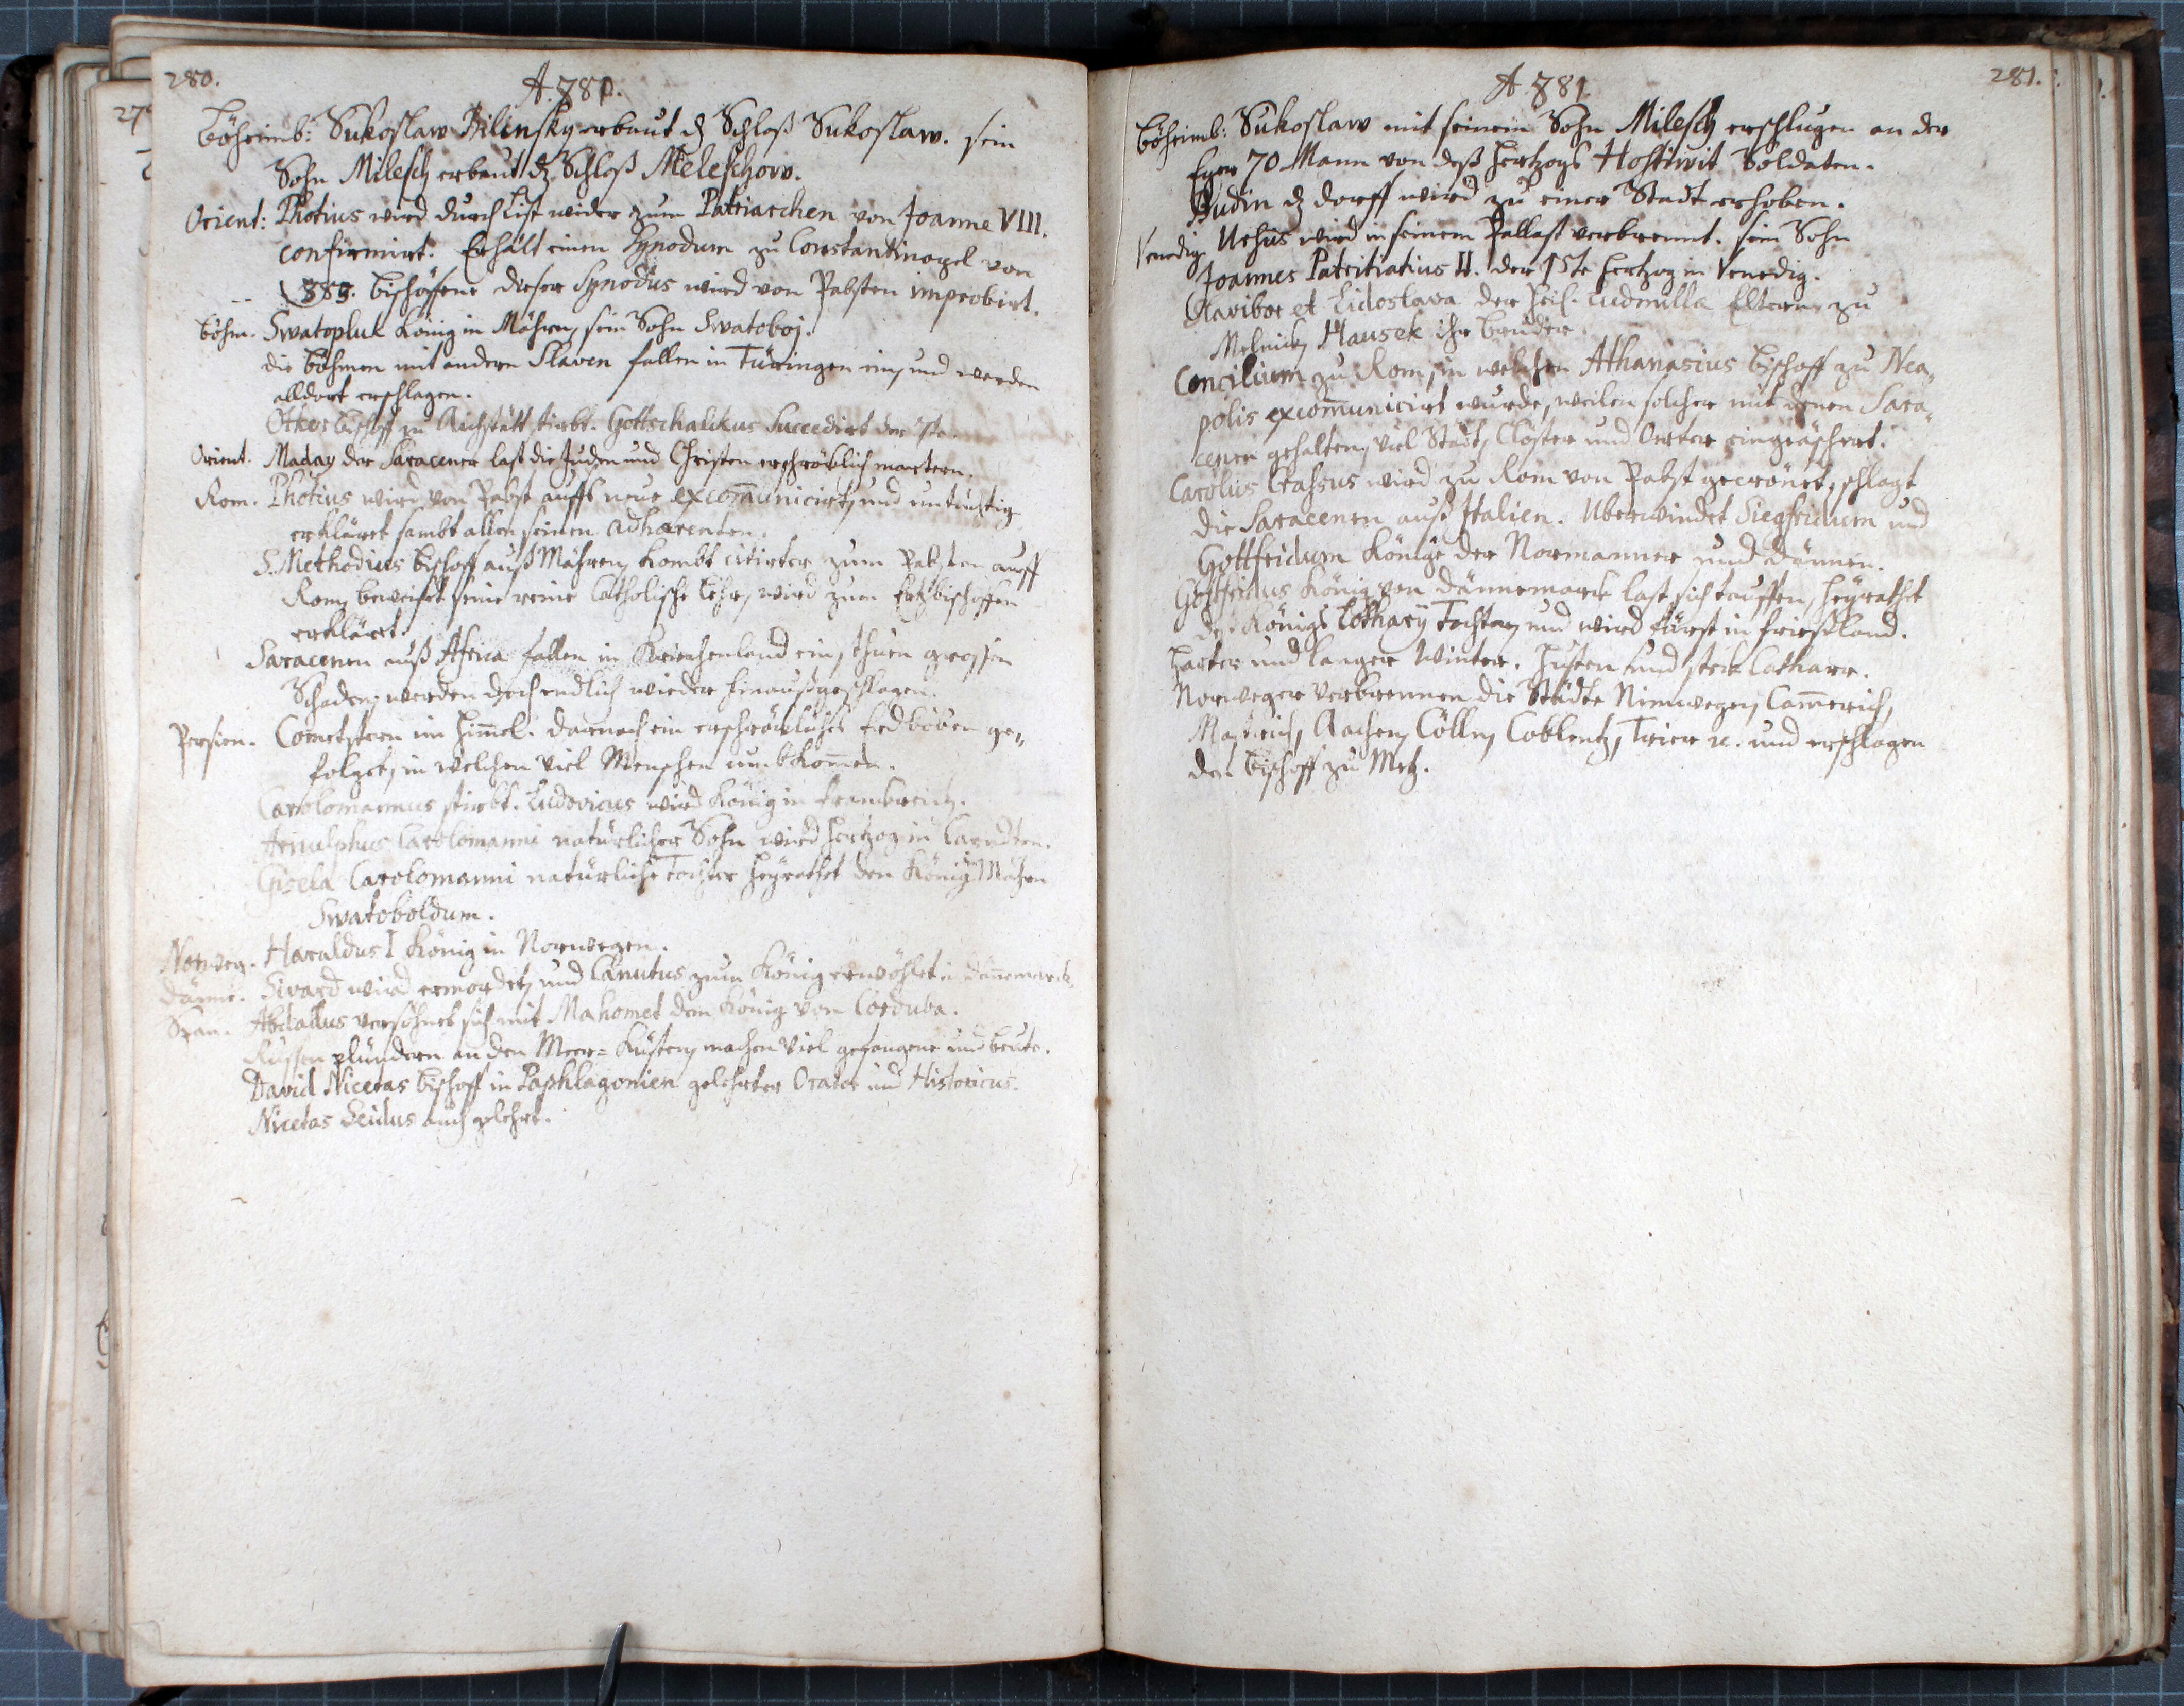 280.
A. 880.
Böheimb: Sukoslaw Bilinsky erbaut dz Schloß Sukoslaw. sein
Sohn Milesch erbaut dz Schloß Meleschow.
Orient: Photius wird durch List wider zum Patriarchen von Joanne VIII.
confirmirt. Erhält einen Synodum zu Constantinopel von
383. bischöffene dieser Synodus wird von Pabsten improbirt.
böhm. Swatopluk König in Mähren, sein Sohn Swatoboj.
die böhmen mit andern Slaven fallen in Türingen ein, und werden
alldort erschlagen.
Otker bischoff zu Aichstätt stirbt. Gottschalikus Succedirt der 7te.
Orient. Maday der Saracener last die Juden und Christen erschröcklich martern.
Rom. Photius wird von Pabst auffs neue excom̄unicirt, und untüchtig
erkläret sambt allen seinen adhaerenten.
S. Methodius bischoff auß Mähren, kombt citirter zum Pabsten auff
Rom, beweiset seine reine Catholische Lehr, wird zum Ertzbischoffen
erklärt.
Saracenen auß Africa fallen in Kriechenland ein, thuen grossen
Schaden, werden doch endlich wieder hinaußgeschlagen.
Persien. Cometstern im Him̄el. darnach ein erschröckliches Erdböben ge„
folget, in welchen viel Menschen umbkom̄en.
Carolomannus stirbt. Ludovicus wird König in Frankreich.
Arnulphus Carolomanni natürlicher Sohn wird Hertzog in Carndten.
Gisela Carolomanni natürliche Tochter heyrathet den König in Mähren
Swatoboldum.
Norweg. Haraldus I König in Norwegen.
Dänne. Sivard wird ermordet, und Canutus zum König erwöhlet in Dennemarck.
Span. Abdallus versöhnet sich mit Mahomet dem König von Corduba.
Russen plündern an den Meer=Küsten, machen viel gefangene und beute.
David Nicetas bischoff in Paphlagonien gelehrter Orator und Historicus.
Nicetas Seidus auch gelehrt.
281.
A. 881.
Böheimb: Sukoslaw mit seinem Sohn Milesch erschlugen an der
Eger 70 Mann von deß Hertzogs Hostiwit Soldaten.
Budin dz dorff wird zu einer Stadt erhoben.
Venedig. Ursus wird in seinem Pallast verbrennt. sein Sohn
Joannes Patritiatius II. der 15te Hertzog in Venedig.
Slavibor et Lidoslava der Heil. Ludmilla Eltern zu
Melnick, Hausek ihr bruder.
Concilium zu Rom, in welchen Athanasius bischoff zu Nea„
polis excom̄unicirt wurde, weilen solcher mit denen Sara„
cenen gehalten, viel Städt, Clöster und Oerter eingeäschert.
Carolus Crassus wird zu Rom von Pabst gecrönet, schlagt
die Saracenen auß Italien. Uberwindet Siegfridum und
Gottfridum Könige der Normanner und Dännen.
Gottfridus König von Dännemarck last sich tauffen, heyrathet
des Königs Lotharÿ Tochter, und wird Fürst in Frießland.
Harter und langer Winter. Husten und steck Catharr.
Norweger verbrennen die Städte Nimwegen, Cam̄erich,
Mastrich, Aachen, Cölln, Coblentz, Trier ec. und erschlagen
den bischoff zu Metz.